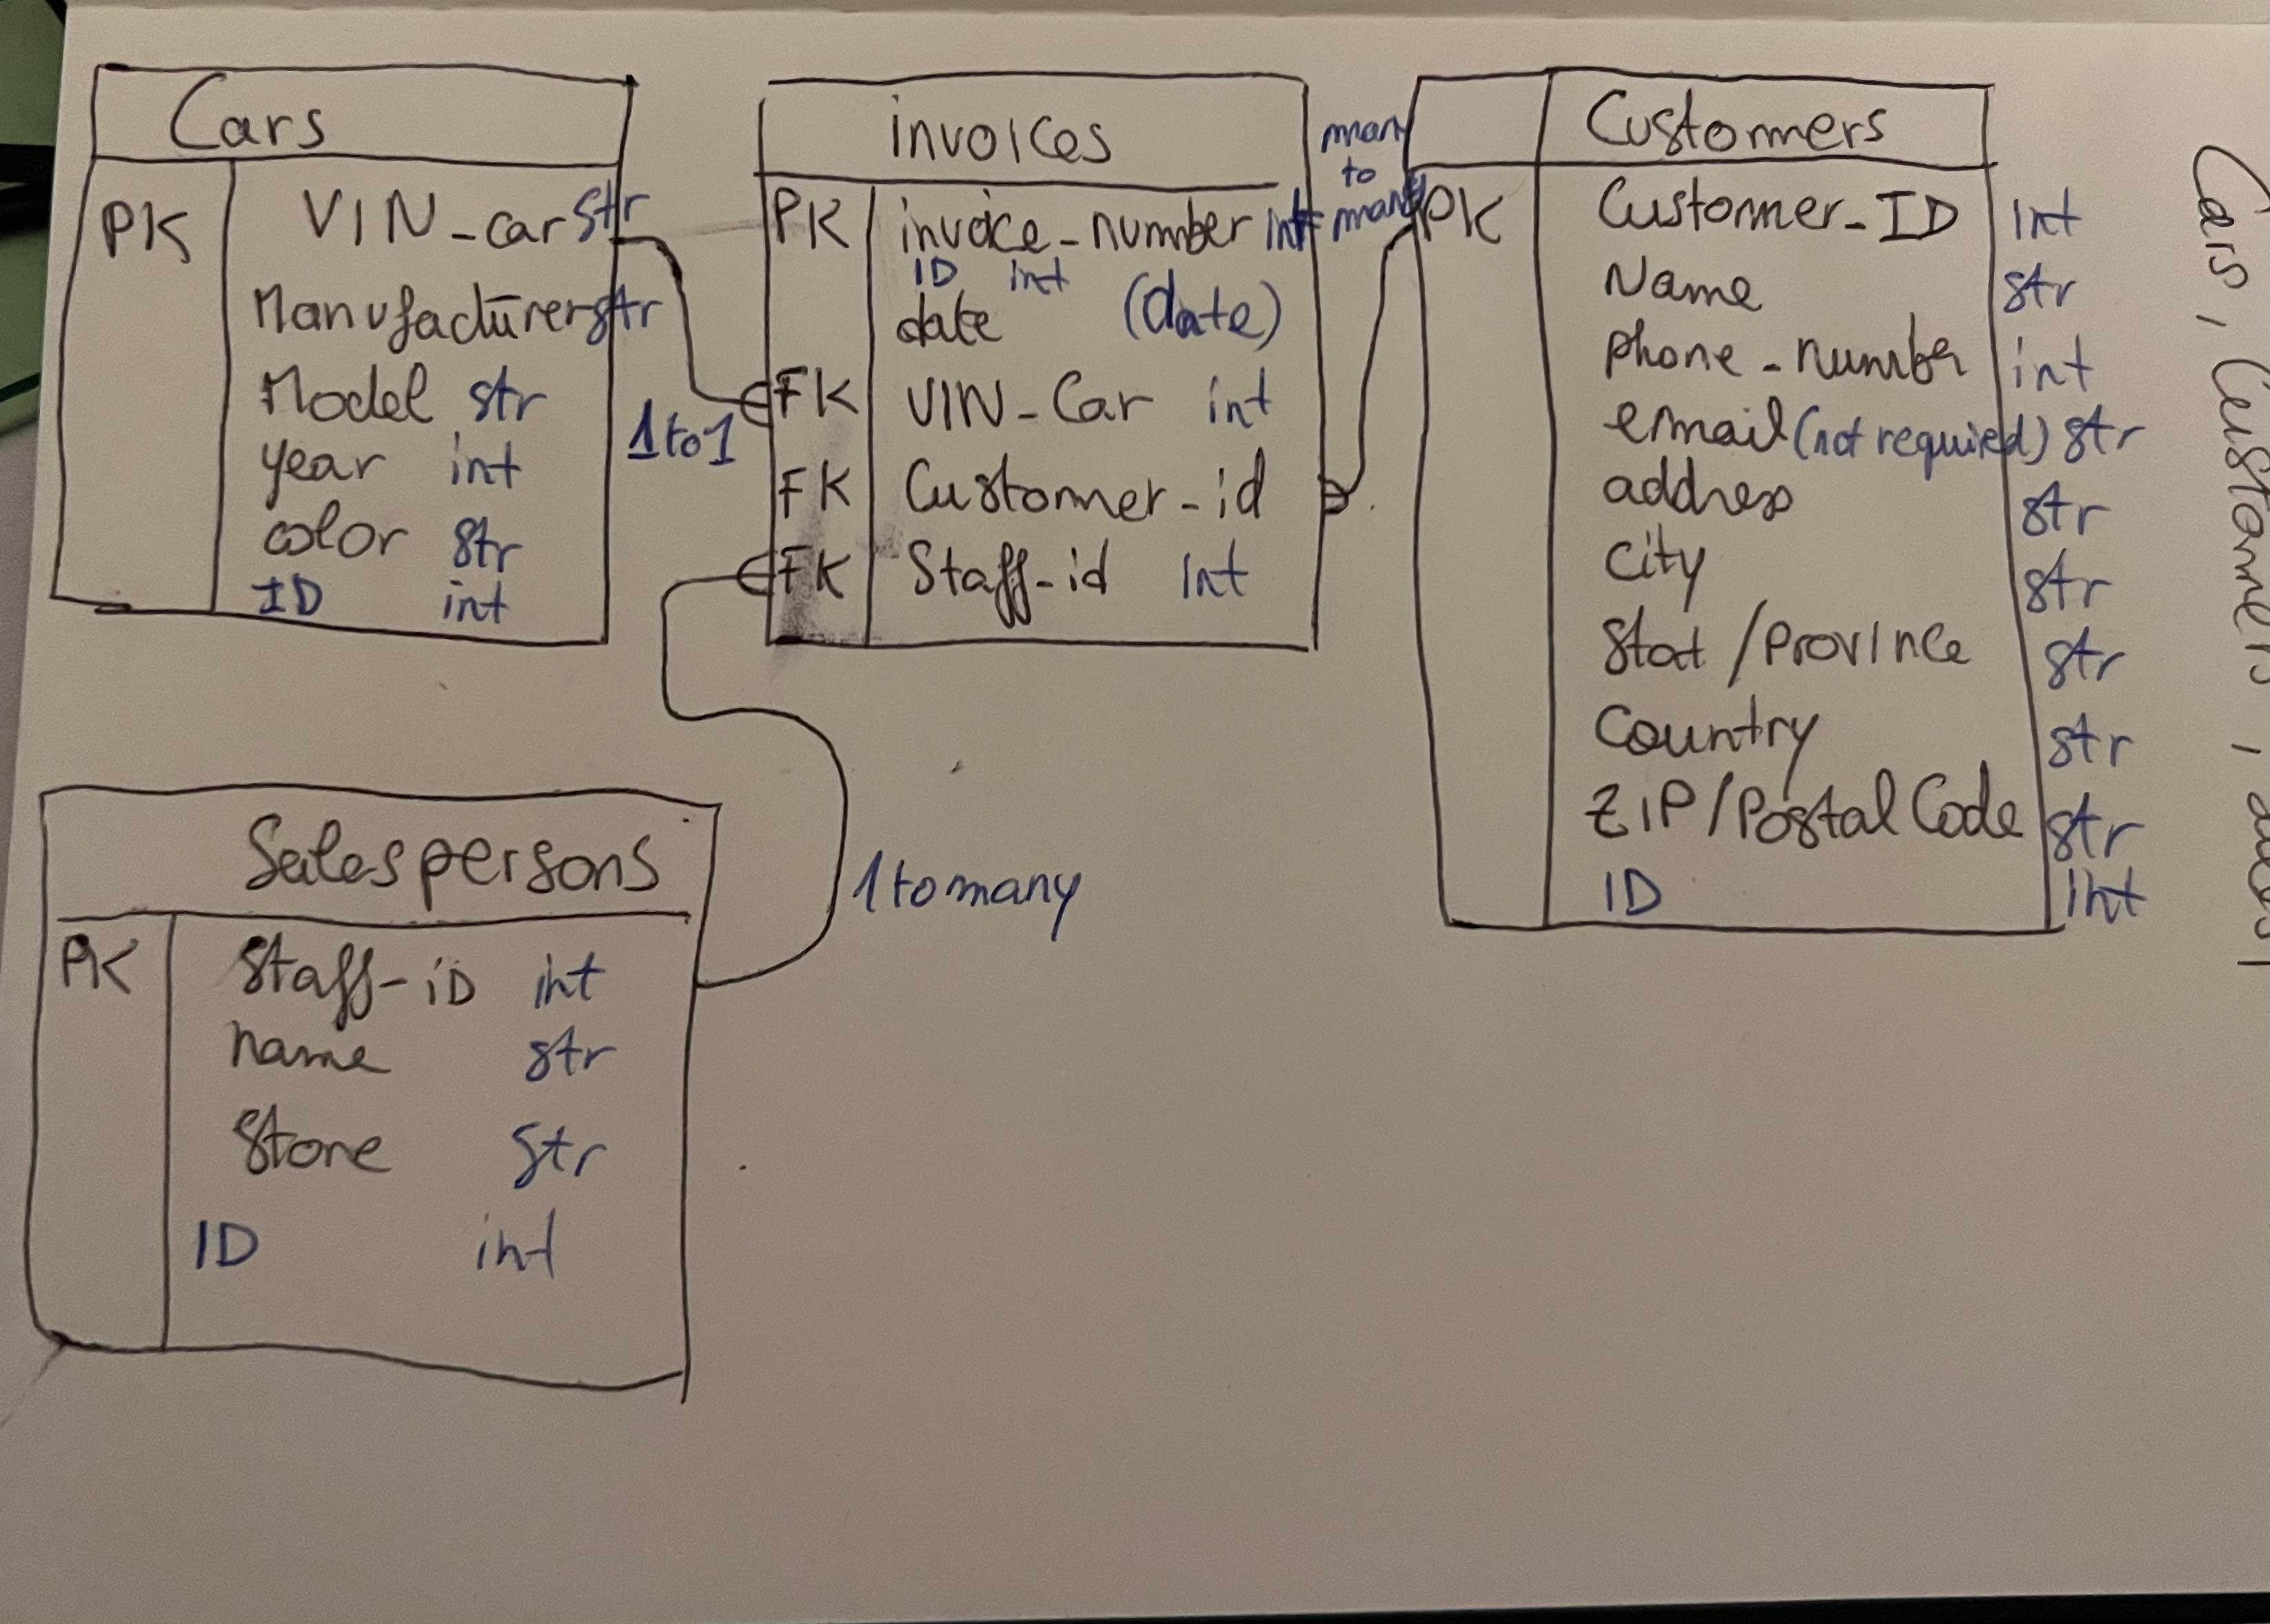 Cars
PK VIN_car str
Manufacturer str
Model str
year int
color str
ID int
1 to 1
invoices
PK invoice_number int
ID int
date (date)
FK VIN_Car int
FK Customer_id
FK Staff_id int
many
to
many
Customers
PK Customer_ID int
Name str
phone_number int
email (not required) str
address str
City str
Stat / Province str
Country str
ZiP / Postal Code str
ID int
Salespersons
PK Staff_iD int
name str
Store str
ID int
1 to many
Cars, Customers,